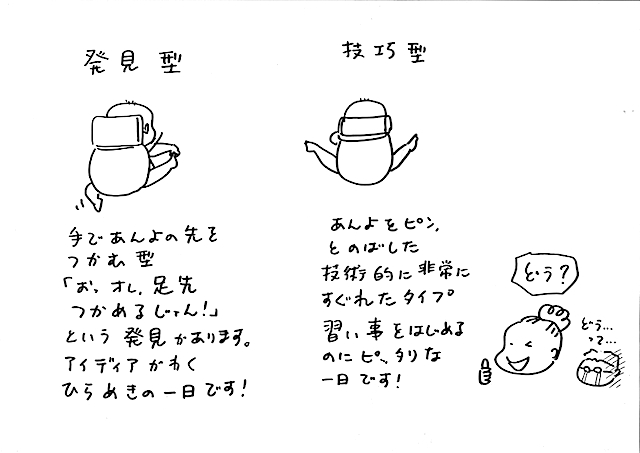 発見型
手であんよの先を
つかむ型
「おっ オレ、足先
つかめるじゃん!」
という発見があります。
アイディアがわく
ひらめきの一日です!
技巧型
あんよをピン、
とのばした
技術的に非常に
すぐれたタイプ
習い事をはじめる
のにピッタリな
一日です!
どう?
どう…
って…